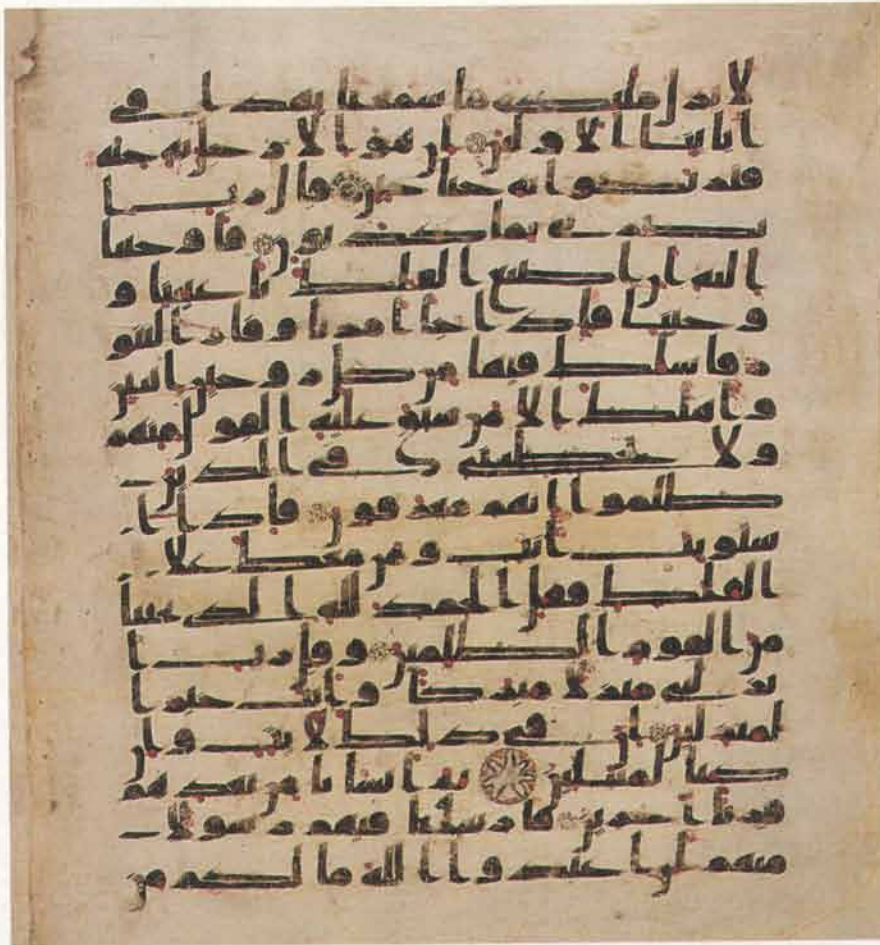 لا نزل ملئكة ما سمعنا بهذا في
ابائنا الاولين ان هو الا رجل به جنة
فتربصوا به حتى حين قال رب ا
نصرني بما كذبون فاوحينا
اليه ان اصنع الفلك باعيننا و
وحينا فاذا جا امرنا وفار التنو
ر فاسلك فيها من كل زوجين اثنين
واهلك الا من سبق عليه القول منهم
ولا تخطبني في الذين
ظلموا انهم مغرقون فاذا ا
ستويت انت ومن معك علا
الفلك فقل الحمد لله الذي نجينا
من القوم الظلمين وقل رب ا
نزلني منزلا مبركا وانت خير ا
لمنزلين ان في ذلك لايت وان
كنا لمبتلين ثم انشانا من بعدهم
قرنا اخرين فارسلنا فيهم رسولا
منهم ان اعبدوا الله ما لكم من